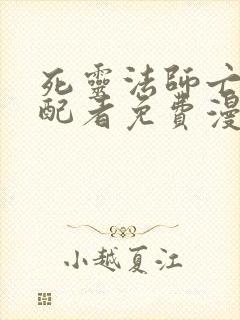 死靈法師
配者免費漫
小越夏江